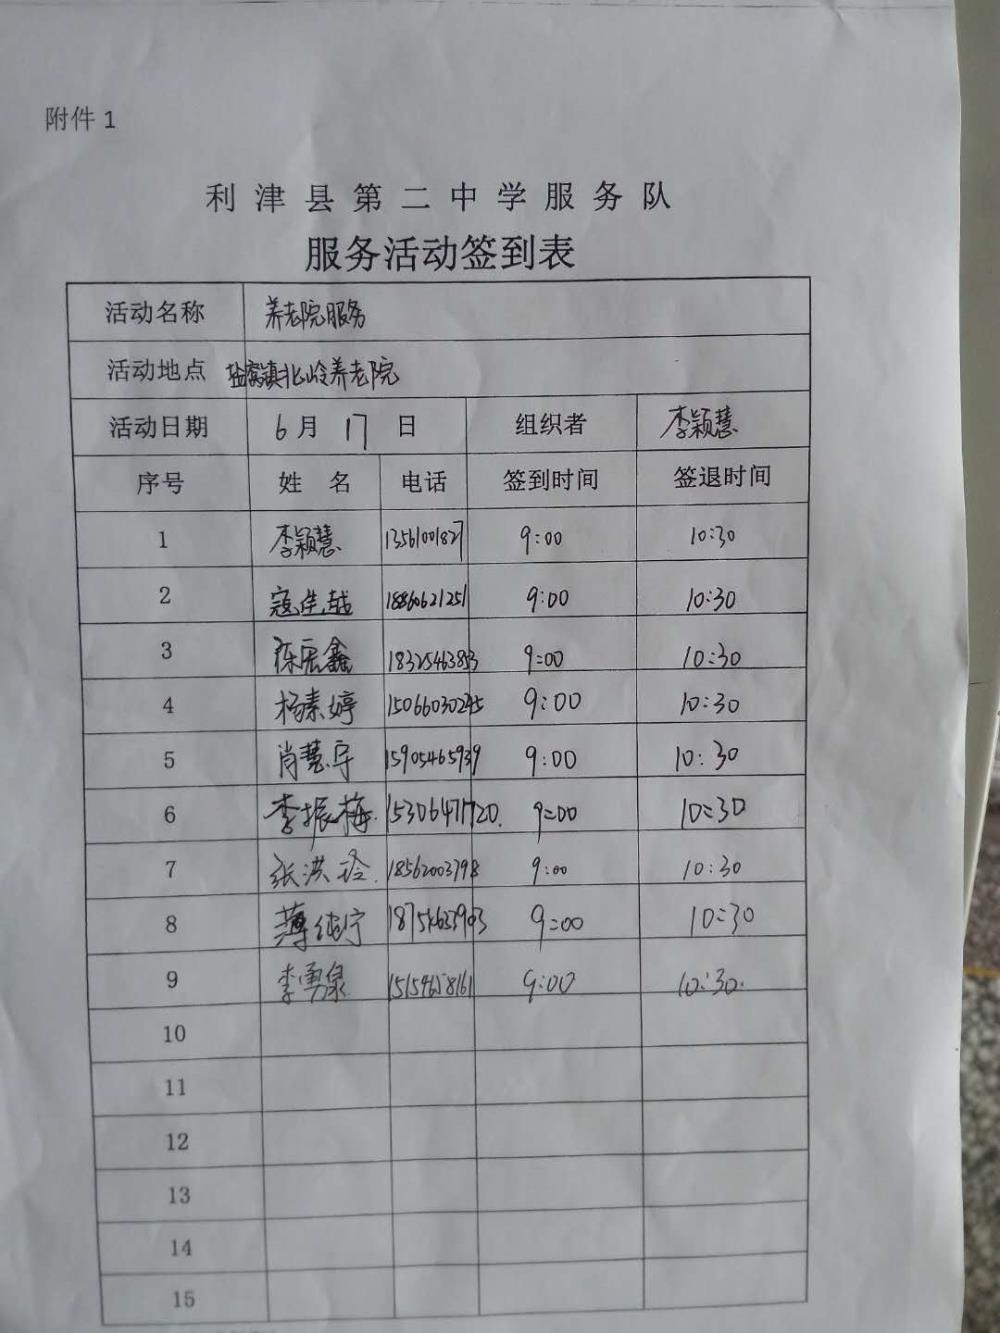 附件 1
利津县第二中学服务队
服务活动签到表
活动名称 养老院服务
活动地点 盐窝镇北岭养老院
活动日期 6月 17 日 组织者 李颖慧
序号 姓名 电话 签到时间 签退时间
1 李颖慧 13561001827 9:00 10:30
2 寇佳越 18860621251 9:00 10:30
3 陈宏鑫 18325463853 9:00 10:30
4 杨素婷 9:00 10:30
5 肖慧宇 15905465939 9:00 10:30
6 李振梅 15306471720. 9:00 10:30
7 张洪玲. 18562003798 9:00 10:30
8 薄纯宁 9:00 10:30
9 李勇泉 15154658161 9:00 10:30.
10
11
12
13
14
15